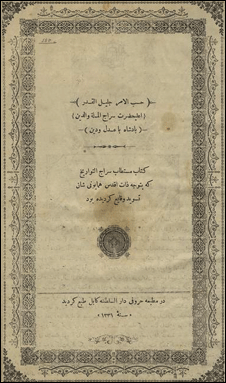 (حسب الامر جلیل القدر)
(اعلیحضرت سراج الملة والدین)
(پادشاه با عدل ودین)
کتاب مستطاب سراج التواریخ
که بتوجه ذات اقدس همایونی شان
تسوید وقایع گردیده بود
در مطبعه حروفی دار السلطنه کابل طبع گردید
سنة ١٣٣١